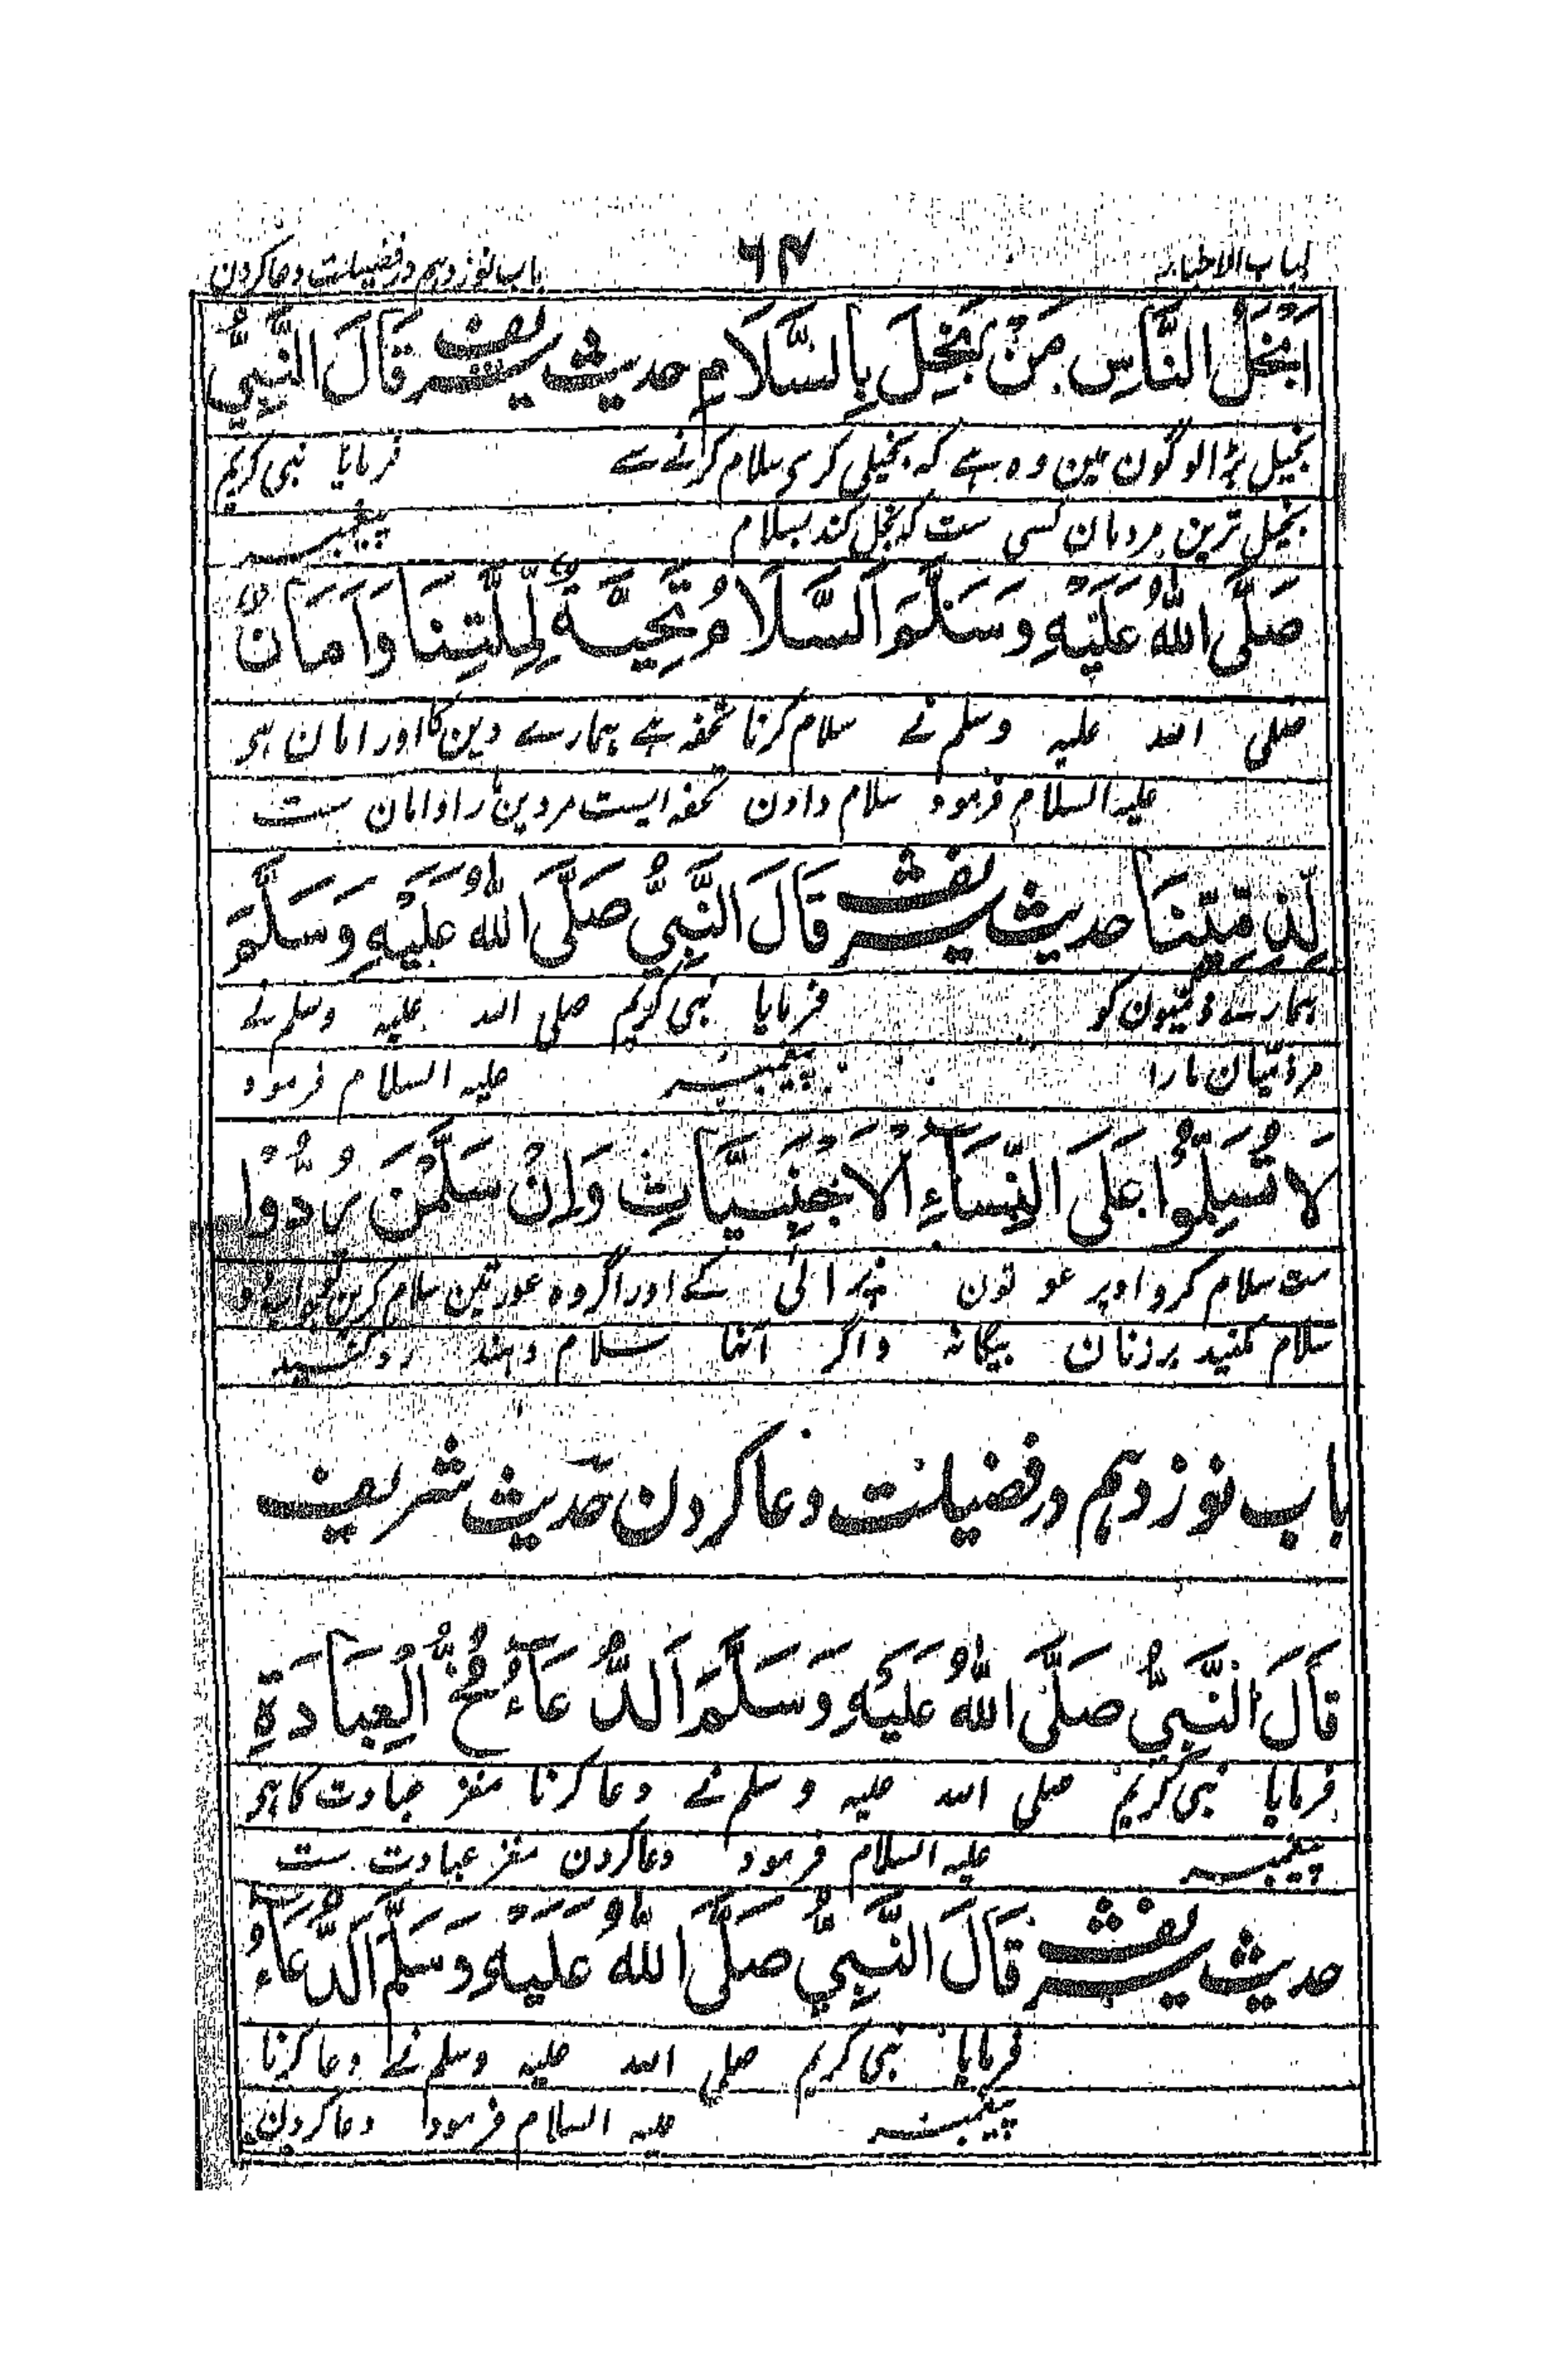 لباب الاخبار ۶۴ باب نوزدہم در فضیلت دعا کردن
اَبْخَلُ النَّاسِ مَنْ بَخِلَ بِالسَّلَامِ حدیث شریف قَالَ النَّبِيُّ
بخیل بڑا لوگون مین وہ ہے کہ بخیلی کری سلام کرنے سے فرمایا نبی کریم
بخیل ترین مردمان کسی ست کہ بخل کند بسلام پیغمبر
صَلَّى اللّٰهُ عَلَيْهِ وَسَلَّمَ اَلسَّلَامُ تَحِيَّةٌ لِمِلَّتِنَا وَاَمَانٌ
صلی اللہ علیہ وسلم نے سلام کرنا تحفہ ہے ہمارے دین کا اور امان ہی
علیہ السلام فرمود سلام دادن تحفہ ایست مر دین مارا و امان ست
لِذِمَّتِنَا حدیث شریف قَالَ النَّبِيُّ صَلَّى اللّٰهُ عَلَيْهِ وَسَلَّمَ
ہمارے ذمیّون کو فرمایا نبی کریم صلی اللہ علیہ وسلم نے
مر ذمیّان مارا پیغمبر علیہ السلام فرمود
لَا تُسَلِّمُوا عَلَى النِّسَاءِ الْاَجْنَبِيَّاتِ وَاِنْ سَلَّمْنَ رُدُّوْا
مت سلام کرو اوپر عو تون پرائی کے اور اگر وہ عورتین سلام کرین تو جواب دو
سلام مکنید بر زنان بیگانہ و اگر آنہا سلام دہند رد کنید
باب نوزدہم در فضیلت دعا کردن حدیث شریف
قَالَ النَّبِيُّ صَلَّى اللّٰهُ عَلَيْهِ وَسَلَّمَ اَلدُّعَاءُ مُخُّ الْعِبَادَةِ
فرمایا نبی کریم صلی اللہ علیہ وسلم نے دعا کرنا مغز عبادت کا ہی
پیغمبر علیہ السلام فرمود دعا کردن مغز عبادت ست
حدیث شریف قَالَ النَّبِيُّ صَلَّى اللّٰهُ عَلَيْهِ وَسَلَّمَ اَلدُّعَاءُ
فرمایا نبی کریم صلی اللہ علیہ وسلم نے دعا کرنا
پیغمبر علیہ السلام فرمود دعا کردن